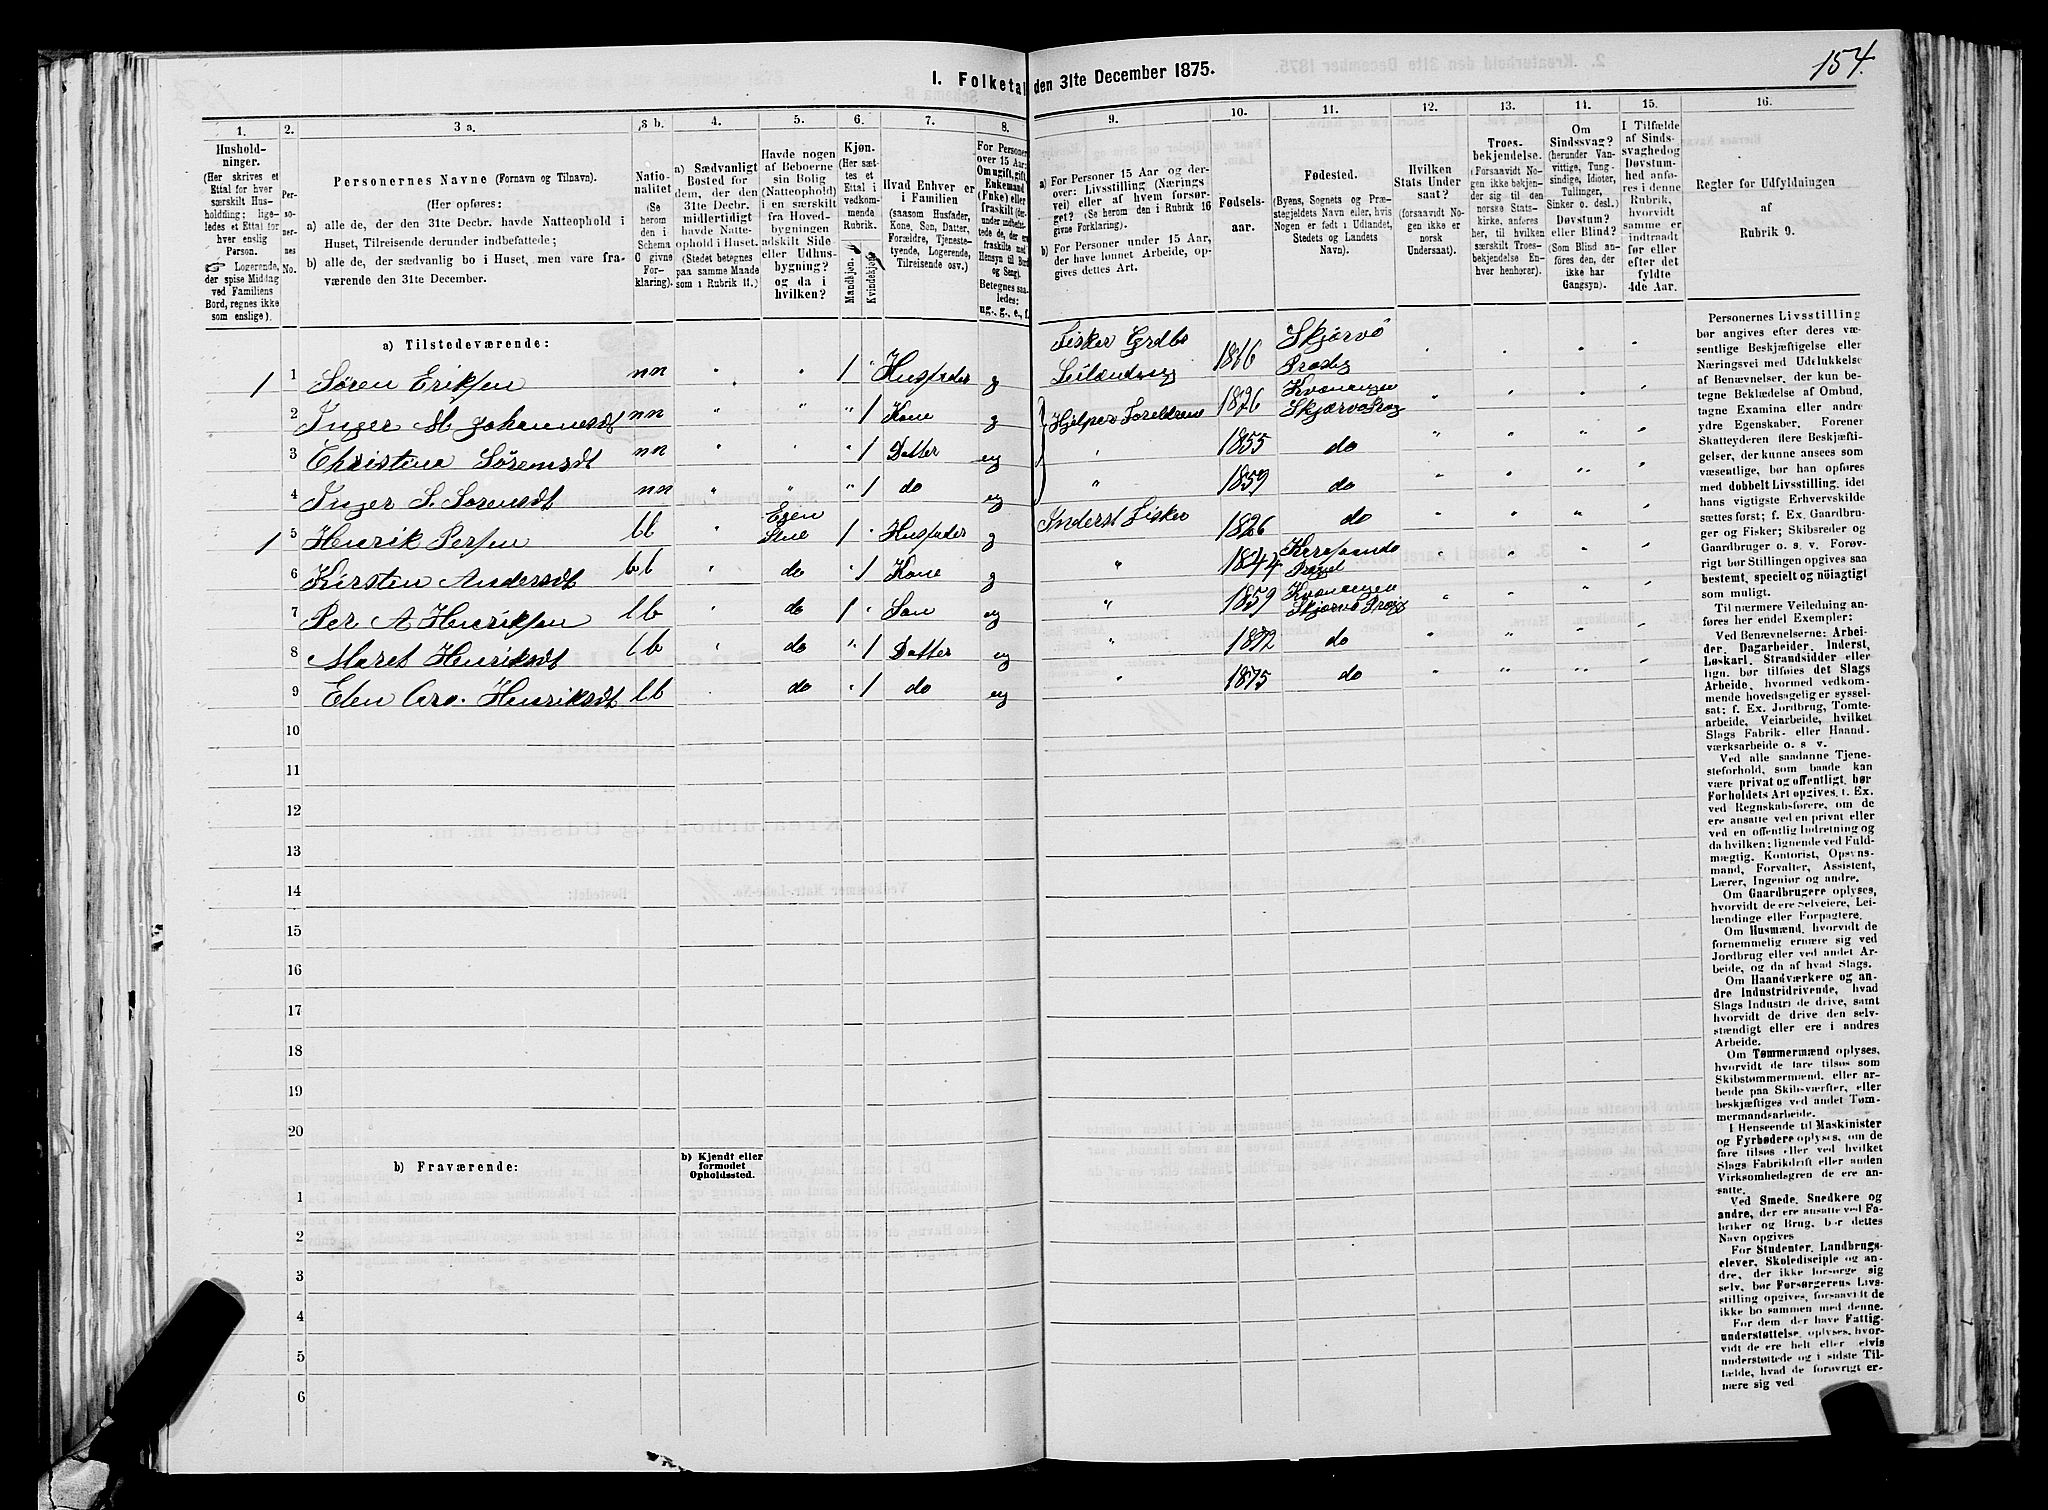 154.
I. Folketal den 31te December 1875.
1. 2. 3 a. 3 b. 4. 5. 6. 7. 8. 9. 10. 11. 12. 13. 14. 15. 16.
Husholdninger.
(Her skrives et
Ettal for hver
særskilt Husholdning; ligeledes et Ettal for
hver enslig
Person.
Logerende,
der spise Middag
ved Familiens
Bord, regnes ikke
som enslige).
Personernes No.
Personernes Navne (Fornavn og Tilnavn).
(Her opføres:
a) alle de, der den 31te Decbr. havde Natteophold i
Huset, Tilreisende derunder indbefattede;
b) alle de, der sædvanlig bo i Huset, men vare fraværende den 31te December.
Nationalitet
(Se
herom
den i
Schema
C givne
Forklaring).
a) Sædvanligt
Bosted for
dem, der den
31te Decbr.
midlertidigt
havde Natteophold i Huset.
(Stedet betegnes
paa samme Maade
som i Rubrik 11.)
Havde nogen
af Beboerne
sin Bolig
(Natteophold)
i en særskilt
fra Hovedbygningen
adskilt Side-
eller Udhusbygning?
og da i
hvilken?
Kjøn.
(Her sættes
et
Ettal i
vedkommende
Rubrik.
Mandkjøn.
Kvindekjøn.
Hvad Enhver er
i Familien
(saasom Husfader,
Kone, Søn, Datter,
Forældre, Tjenestetyende, Logerende,
Tilreisende osv.)
For Personer
over 15 Aar:
Om ugift, gift,
Enkemand
(Enke) eller
fraskilt (derunder indbefattede de, der ere
fraskilte med
Hensyn til Bord
og Seng).
Betegnes saaledes:
ug., g., e., f.
a) For Personer 15 Aar og derover: Livsstilling (Næringsvei) eller af hvem forsørget? (Se herom i Rubrik 16
givne Forklaring).
b) For Personer under 15 Aar,
der have lønnet Arbeide, opgives dettes Art.
Fødselsaar.
Fødested.
(Byens, Sognets og Præstegjeldets Navn eller, hvis
Nogen er født i Udlandet,
Stedets og Landets
Navn).
Hvilken
Stats Undersaat?
(forsaavidt Nogen ikke er
norsk
Undersaat).
Troesbekjendelse.
(Forsaavidt Nogen ikke bekjender sig til den
norske Statskirke, anføres
her, til hvilken
særskilt Troesbekjendelse Enhver henhører).
Om
Sindssvag?
(herunder Vanvittige, Tungsindige, Idioter,
Tullinger,
Sinker o. desl.)
Døvstum?
eller Blind?
(Som Blind anføres den, der
ikke har
Gangsyn).
I Tilfælde
af Sindssvaghed og
Døvstumhed anføres i denne
Rubrik,
hvorvidt
samme er
indtraadt
før eller
efter det
fyldte
4de Aar.
Regler for Udfyldningen
af
Rubrik 9.
a) Tilstedeværende:
1 1 Søren Eriksen nn " " 1 " Husfader g Fisker Grdbr Leilænding 1816 Skjervö Prstg
2 Inger M Johannesdt nn " " " 1 Kone g 1826 Kvænangen Skjærvö Prstg
3 Christina Sörensdt nn " " " 1 Datter ug Hjelper Foreldrene 1855 do
4 Inger S. Sörensdt nn " " " 1 do ug " 1859 do
1 5 Henrik Persen lb Egen Stue 1 " Husfader g Inderst Fisker 1826 do
6 Kirsten Andersdt bb " do " 1 Kone g " 1844 Prgjd
7 Per A Henriksen lb " do 1 " Søn ug " 1859 Kvænangen Skjervö Prgj
8 Maret Henriksdt lb " do " 1 Datter ug " 1872 do
9 Elen Henriksdt lb " do " 1 do ug " 1875 do
10
11
12
13
14
15
16
17
18
19
20
b) Fraværende:
b) Kjendt eller
formodet
Opholdssted.
1
2
3
4
5
6
Personernes Livsstilling
bør angives efter deres væsentlige Beskjæftigelse eller
Næringsvei med Udelukkelse
af Benævnelser, der kun betegne Beklædelse af Ombud,
tagne Examina eller andre
ydre Egenskaber. Forener
Skatteyderen flere Beskjæftigelser, der kunne ansees som
væsentlige, bør han opføres
med dobbelt Livsstilling, idet
hans vigtigste Erhvervskilde
sættes først; f. Ex. Gaardbruger og Fisker; Skibsreder og
Gaardbruger o. s. v. Forøvrigt bør Stillingen opgives saa
bestemt, specielt og nöiagtigt
som muligt.
Til nærmere Veiledning anføres her endel Exempler:
Ved Benævnelserne: Arbeider, Dagarbeider, Inderst,
Løskarl, Strandsidder eller
lign. bør tilføies det Slags
Arbeide, hvormed vedkommende hovedsagelig er sysselsat; f. Ex. Jordbrug, Tomtearbeide, Veiarbeide, hvilket
Slags Fabrik- eller Haandværksarbeide o. s. v.
Ved alle saadanne Tjenesteforhold, som baade kan
være privat og offentligt, bør
Forholdets Art opgives, f. Ex.
ved Regnskabsførere, om de
ere ansatte ved en privat eller
ved en offentlig Indretning og
da hvilken; lignende ved Fuldmægtig, Kontorist, Opsynsmand, Forvalter, Assistent,
Lærer, Ingeniør og andre.
Om Gaardbrugere oplyses,
hvorvidt de ere Selveiere, Leilændinge eller Forpagtere.
Om Husmænd, hvorvidt de
fornemmelig ernære sig ved
Jordbrug eller ved andet Arbeide, og da af hvad Slags.
Om Haandværkere og andre Industridrivende, hvad
Slags Industri de drive, samt
hvorvidt de drive den selvstændigt eller ere i andres
Arbeide.
Om Tømmermænd oplyses,
hvorvidt de fare tilsøs som
Skibstømmermænd, eller arbeide paa Skibsværfter, eller
beskjæftiges ved andet Tømmermandsarbeide.
I Henseende til Maskinister
og Fyrbødere oplyses, om de
fare tilsøs eller ved hvilket
Slags Fabrikdrift eller anden
Virksomhedsgren de ere ansatte.
Ved Smede, Snedkere og
andre, der ere ansatte ved Fabriker og Brug, bør dettes
Navn opgives
For Studenter, Landbrugselever, Skoledisciple og andre, der ikke forsørge sig
selv, bør Forsørgerens Livsstilling opgives, forsaavidt de
ikke bo sammen med denne.
For dem, der have Fattigunderstøttelse, oplyses, hvorvidt de ere helt eller delvis
understøttede og i sidste Tilfælde, hvad de forøvrigt ernære sig ved